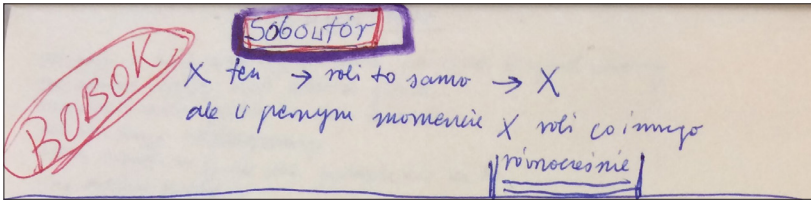 Sobowtór
BOBOK
X ten → robi to samo → X
ale w pewnym momencie X robi co innego
równocześnie